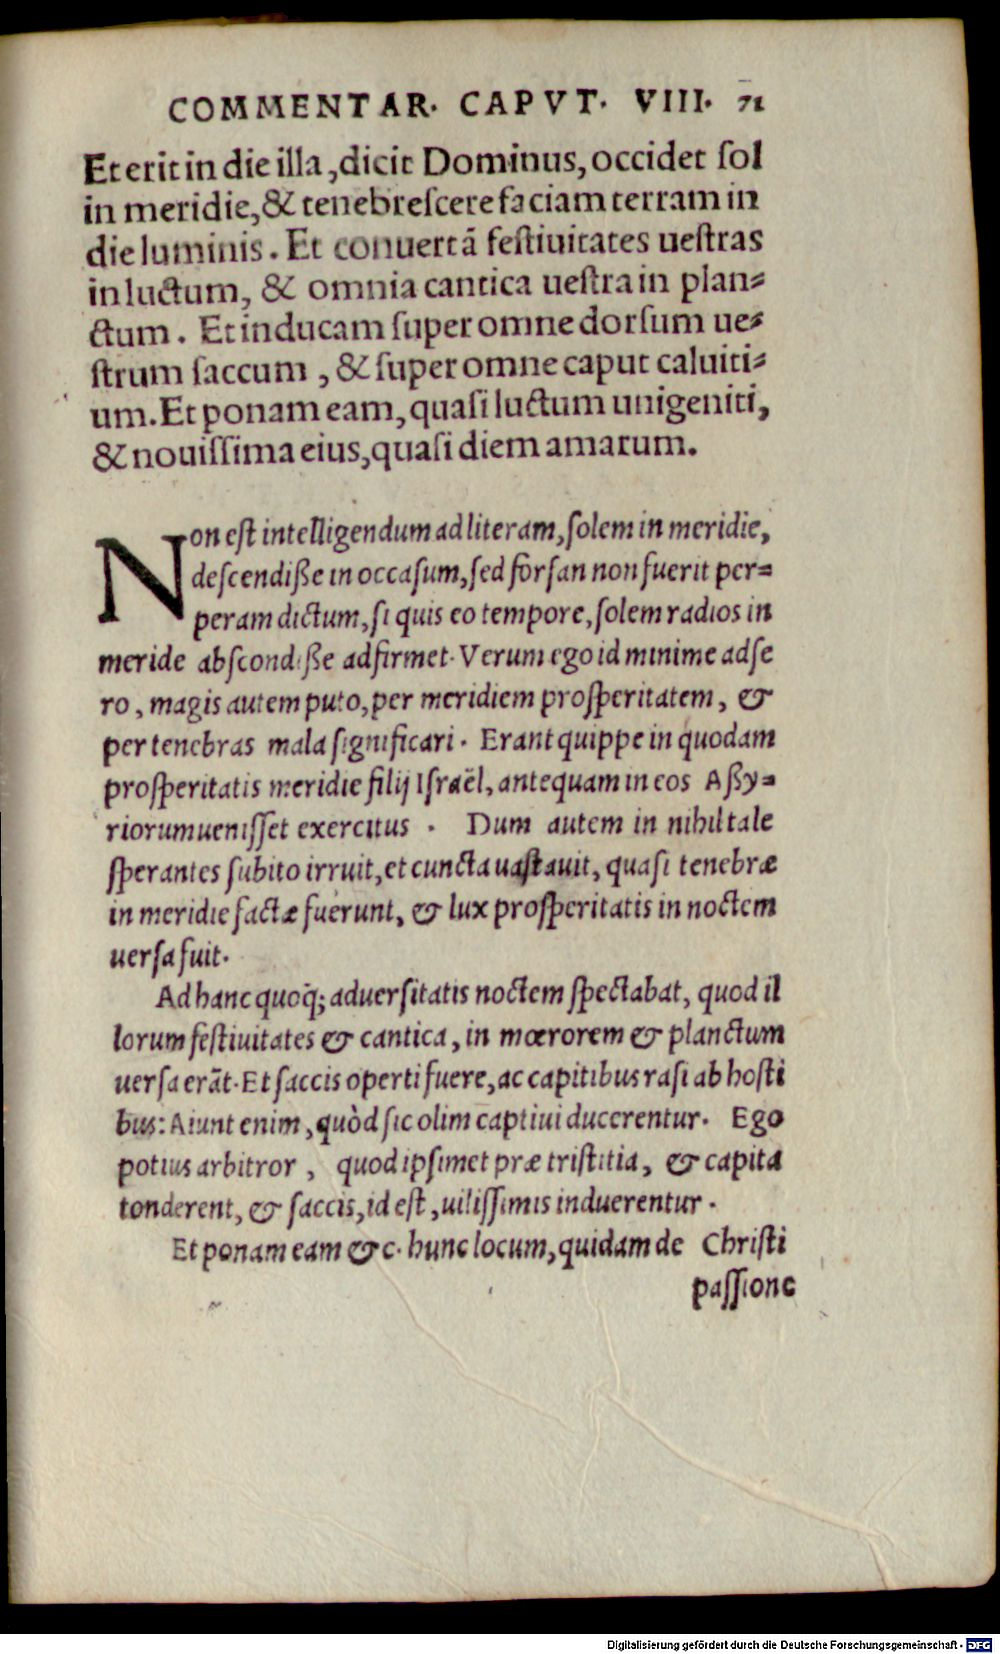 COMMENTAR. CAPVT. VIII. 71
Et erit in die illa, dicit Dominus, occidet sol
in meridie, & tenebrescere faciam terram in
die luminis. Et conuertā festiuitates uestras
in luctum, & omnia cantica uestra in plan=
ctum. Et inducam super omne dorsum ue=
strum saccum, & super omne caput caluiti=
um. Et ponam eam, quasi luctum unigeniti,
& nouissima eius, quasi diem amarum.
Non est intelligendum ad literam, solem in meridie,
descendiße in occasum, sed forsan non fuerit per=
peram dictum, si quis eo tempore, solem radios in
meride abscondiße adfirmet. Verum ego id minime adse
ro, magis autem puto, per meridiem prosperitatem, &
per tenebras mala significari. Erant quippe in quodam
prosperitatis meridie filij Israël, antequam in eos Aßy=
riorum uenisset exercitus. Dum autem in nihil tale
sperantes subito irruit, et cuncta uastauit, quasi tenebræ
in meridie factæ fuerunt, & lux prosperitatis in noctem
uersa fuit.
Ad hanc quoq̃; aduersitatis noctem spectabat, quod il
lorum festiuitates & cantica, in mœrorem & planctum
uersa erãt. Et saccis operti fuere, ac capitibus rasi ab hosti
bus: Aiunt enim, quòd sic olim captiui ducerentur. Ego
potius arbitror, quod ipsimet præ tristitia, & capita
tonderent, & saccis, id est, uilissimis induerentur.
Et ponam eam &c. hunc locum, quidam de Christi
passione
Digitalisierung gefördert durch die Deutsche Forschungsgemeinschaft - DFG